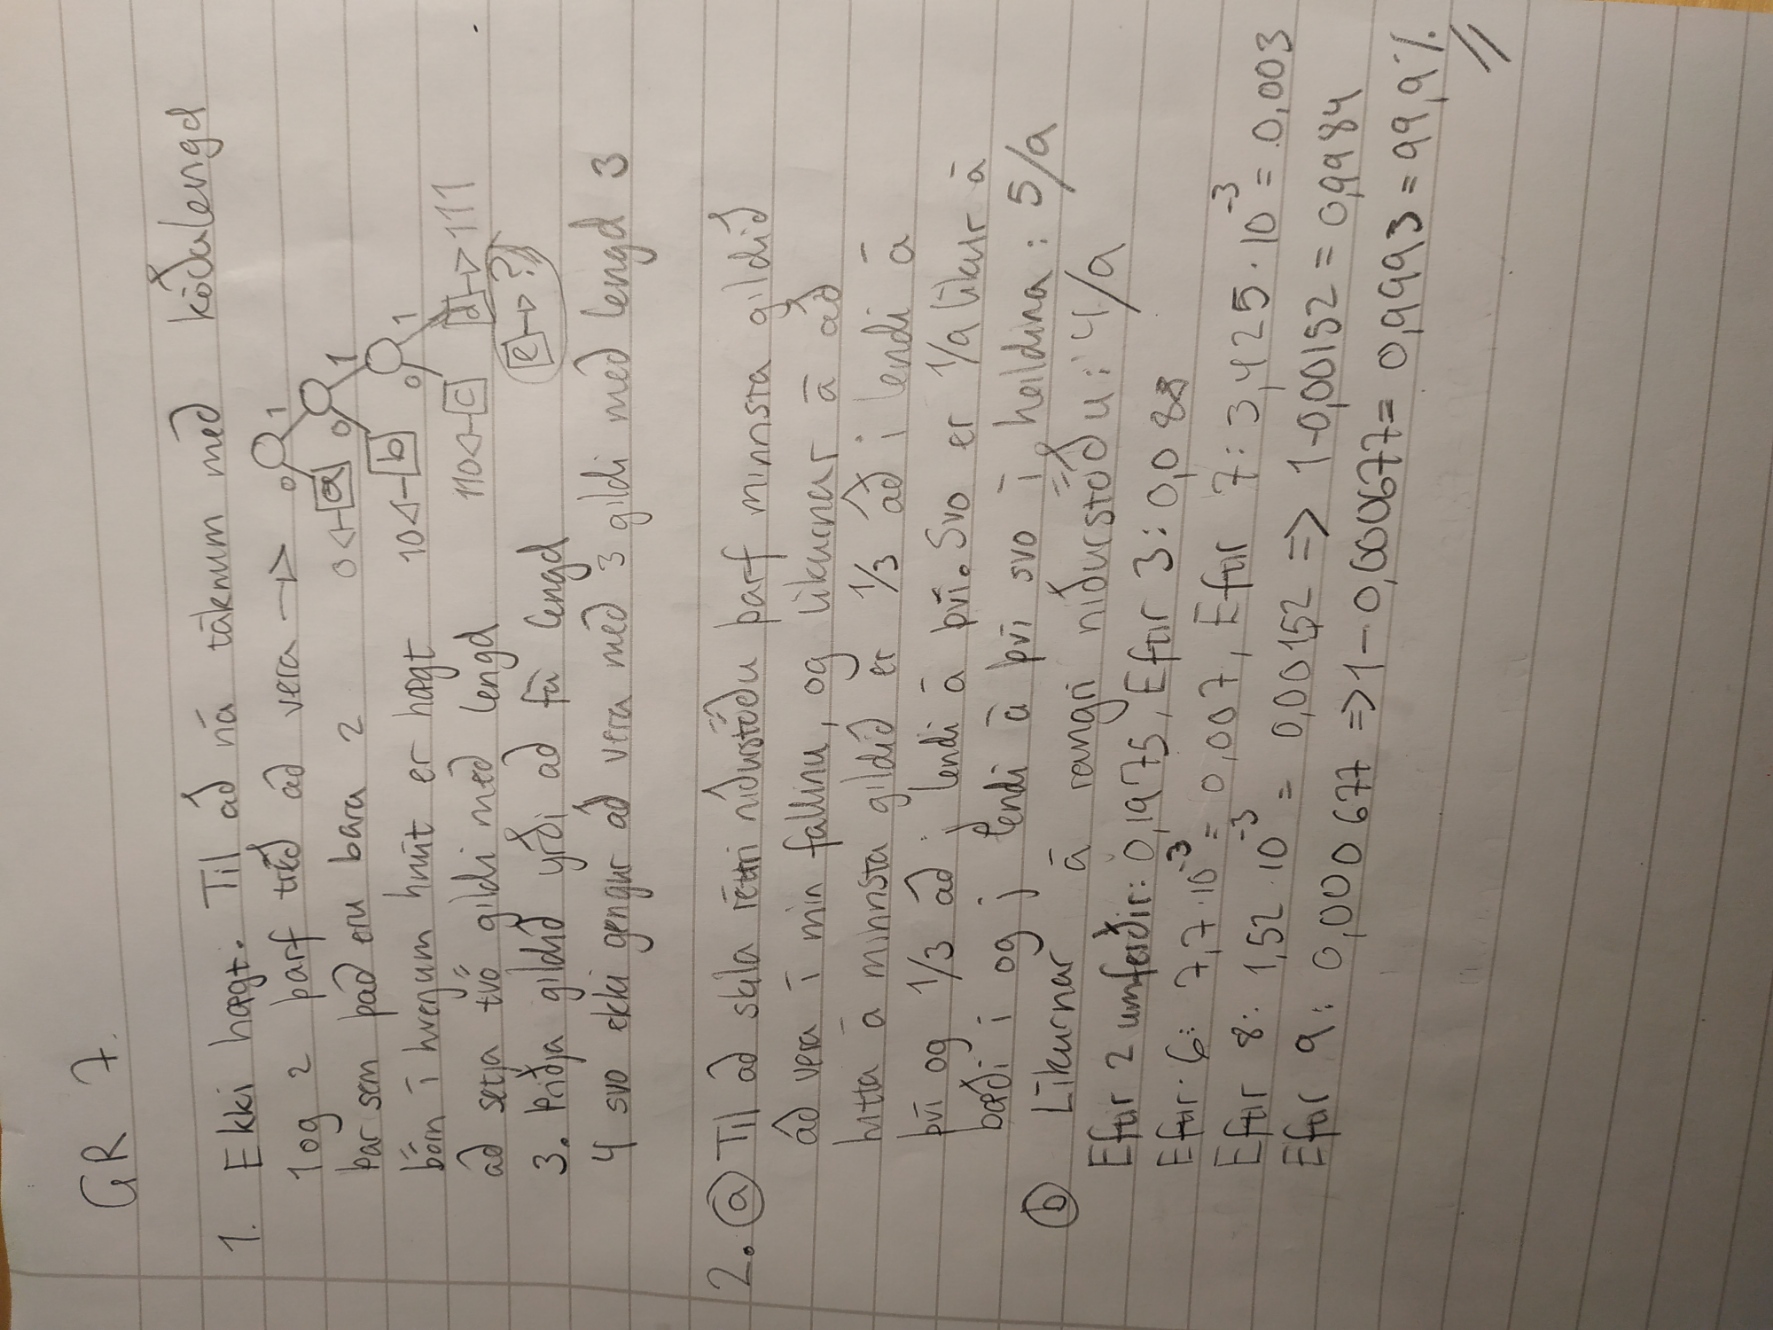 GR 7.
1. Ekki hægt. Til að ná táknum með kóðalengd
1 og 2 þarf tréð að vera →
þar sem það eru bara 2
börn í hverjum hnút er hægt
að setja tvö gildi með lengd
3. Þriðja gildið yrði að fá lengd
4 svo ekki gengur að vera með 3 gildi með lengd 3
0 1
0 ← a 0 1
10 ← b 0 1
110 ← c d → 111
e → ?
2. a Til að skila réttri niðurstöðu þarf minnsta gildið
að vera í min fallinu, og líkurnar á að
hitta á minnsta gildið er 1/3 að i lendi á
því og 1/3 að j lendi á því. Svo er 1/9 líkur á
bæði i og j lendi á því svo í heildina: 5/9
b Líkurnar á rangri niðurstöðu: 4/9
Eftir 2 umferðir: 0,1975, Eftir 3: 0,088
Eftir 6: 7,7·10⁻³ = 0,007, Eftir 7: 3,425·10⁻³ = 0,003
Eftir 8: 1,52·10⁻³ = 0,00152 => 1-0,00152 = 0,9984
Eftir 9: 0,000677 => 1-0,000677 = 0,9993 = 99,9%